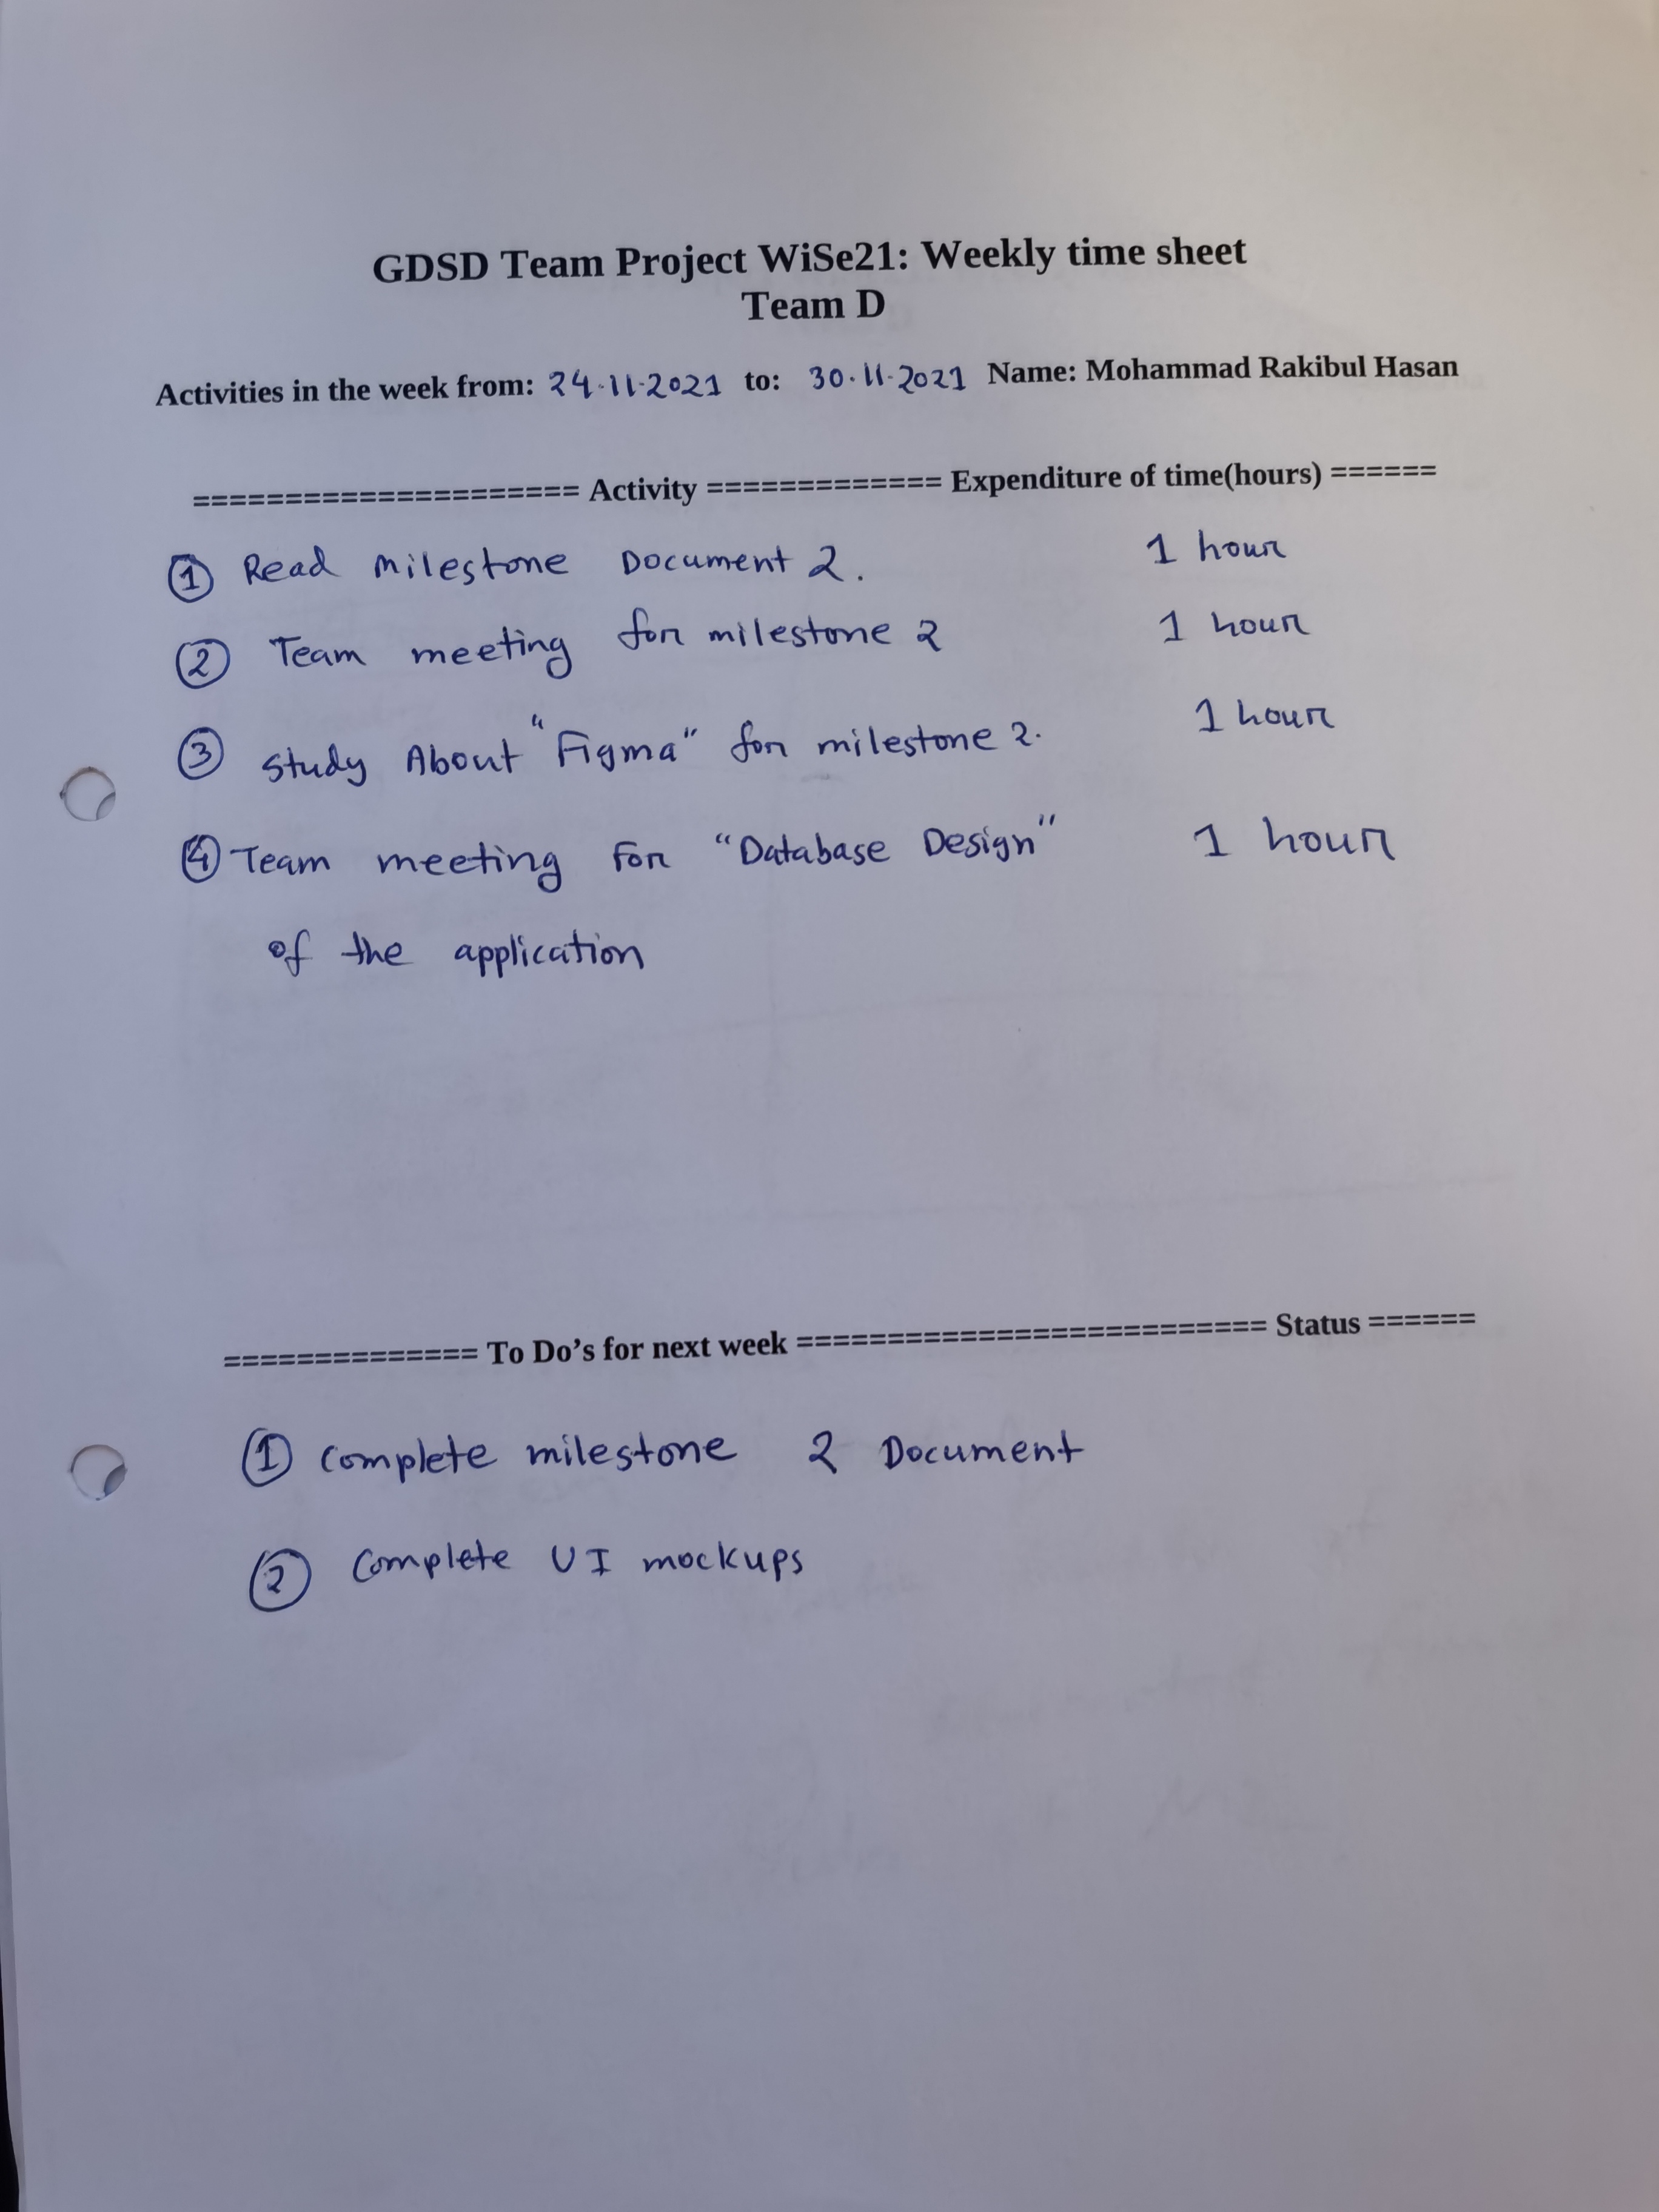 GDSD Team Project WiSe21: Weekly time sheet
Team D
Activities in the week from: 24.11.2021 to: 30.11.2021 Name: Mohammad Rakibul Hasan
===================== Activity ============= Expenditure of time(hours) ======
① Read milestone Document 2. 1 hour
② Team meeting for milestone 2 1 hour
③ study About "Figma" for milestone 2. 1 hour
④ Team meeting For "Database Design" 1 hour
of the application
============== To Do's for next week ========================== Status ======
① complete milestone 2 Document
② Complete UI mockups